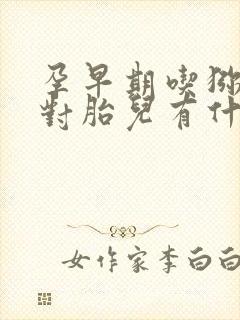 孕早期喫猕
對胎兒有什
女作家李白白